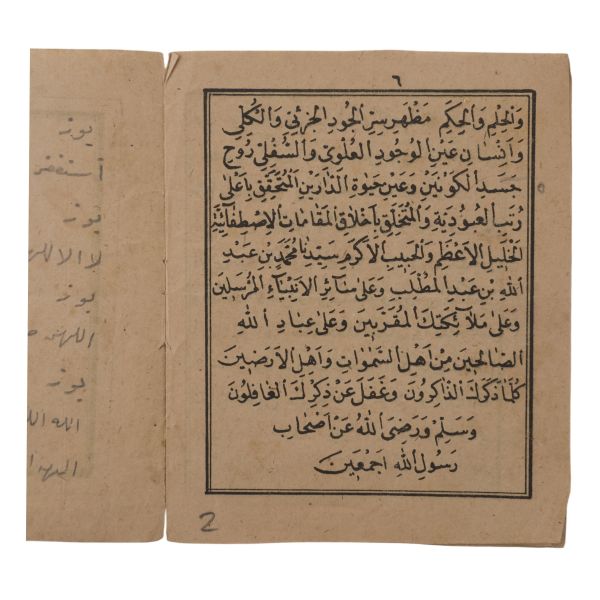 ٦
وَالْحِلْمِ وَالْحِكَمِ مَظْهَرِ سِرِّ الْجُودِ الْجُزْئِيِّ وَالْكُلِّيِّ
وَاِنْسَانِ عَيْنِ الْوُجُودِ الْعُلْوِيِّ وَالسُّفْلِيِّ رُوحِ
جَسَدِ الْكَوْنَيْنِ وَعَيْنِ حَيٰوةِ الدَّارَيْنِ الْمُتَحَقِّقِ بِاَعْلٰى
رُتَبِ الْعُبُودِيَّةِ وَالْمُتَخَلِّقِ بِاَخْلَاقِ الْمَقَامَاتِ الْاِصْطِفَائِيَّةِ
الْخَلِيلِ الْاَعْظَمِ وَالْحَبِيبِ الْاَكْرَمِ سَيِّدِنَا مُحَمَّدِ بْنِ عَبْدِ
اللهِ بْنِ عَبْدِ الْمُطَّلِبِ وَعَلٰى سَائِرِ الْاَنْبِيَاءِ الْمُرْسَلِينَ
وَعَلٰى مَلَائِكَتِكَ الْمُقَرَّبِينَ وَعَلٰى عِبَادِ اللهِ
الصَّالِحِينَ مِنْ اَهْلِ السَّمٰوَاتِ وَاَهْلِ الْاَرَضِينَ
كُلَّمَا ذَكَرَكَ الذَّاكِرُونَ وَغَفَلَ عَنْ ذِكْرِكَ الْغَافِلُونَ
وَسَلِّمْ وَرَضِىَ اللهُ عَنْ اَصْحَابِ
رَسُولِ اللهِ اَجْمَعِينَ
2
يوز
استغفر
يوز
لا اله
يوز
اللهم
يوز
الله